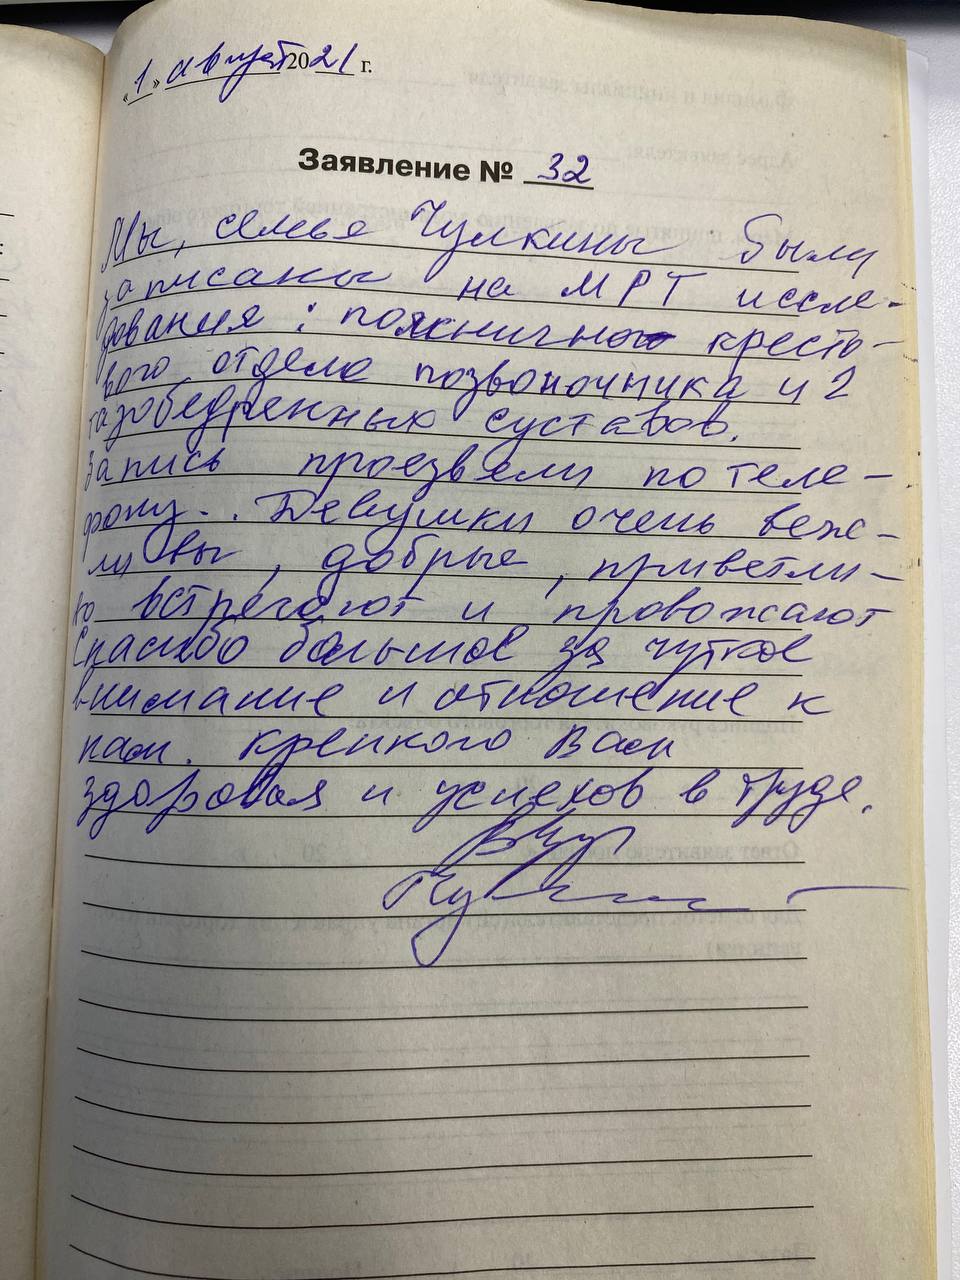 «1» август 2021 г.
Заявление № 32
Мы, семья Чулкины были
записаны на МРТ иссле-
дования: пояснично кресто-
вого отдела позвоночника и 2
тазобедренных суставов.
Запись проезвели по теле-
фону.. Девушки очень веж-
ли вы, добрые, приветли-
во встречают и провожают
Спасибо большое за чуткое
внимание и отношение к
нам. Крепкого Вам
здоровья и успехов в труде.